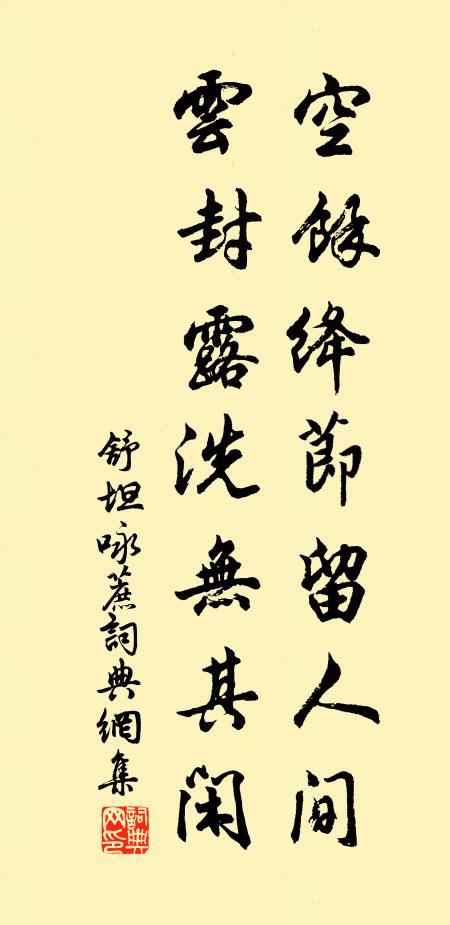 空餘绛節留人间
雲封露洗無其闲
舒坦咏蔗詞典網集
詞典网印